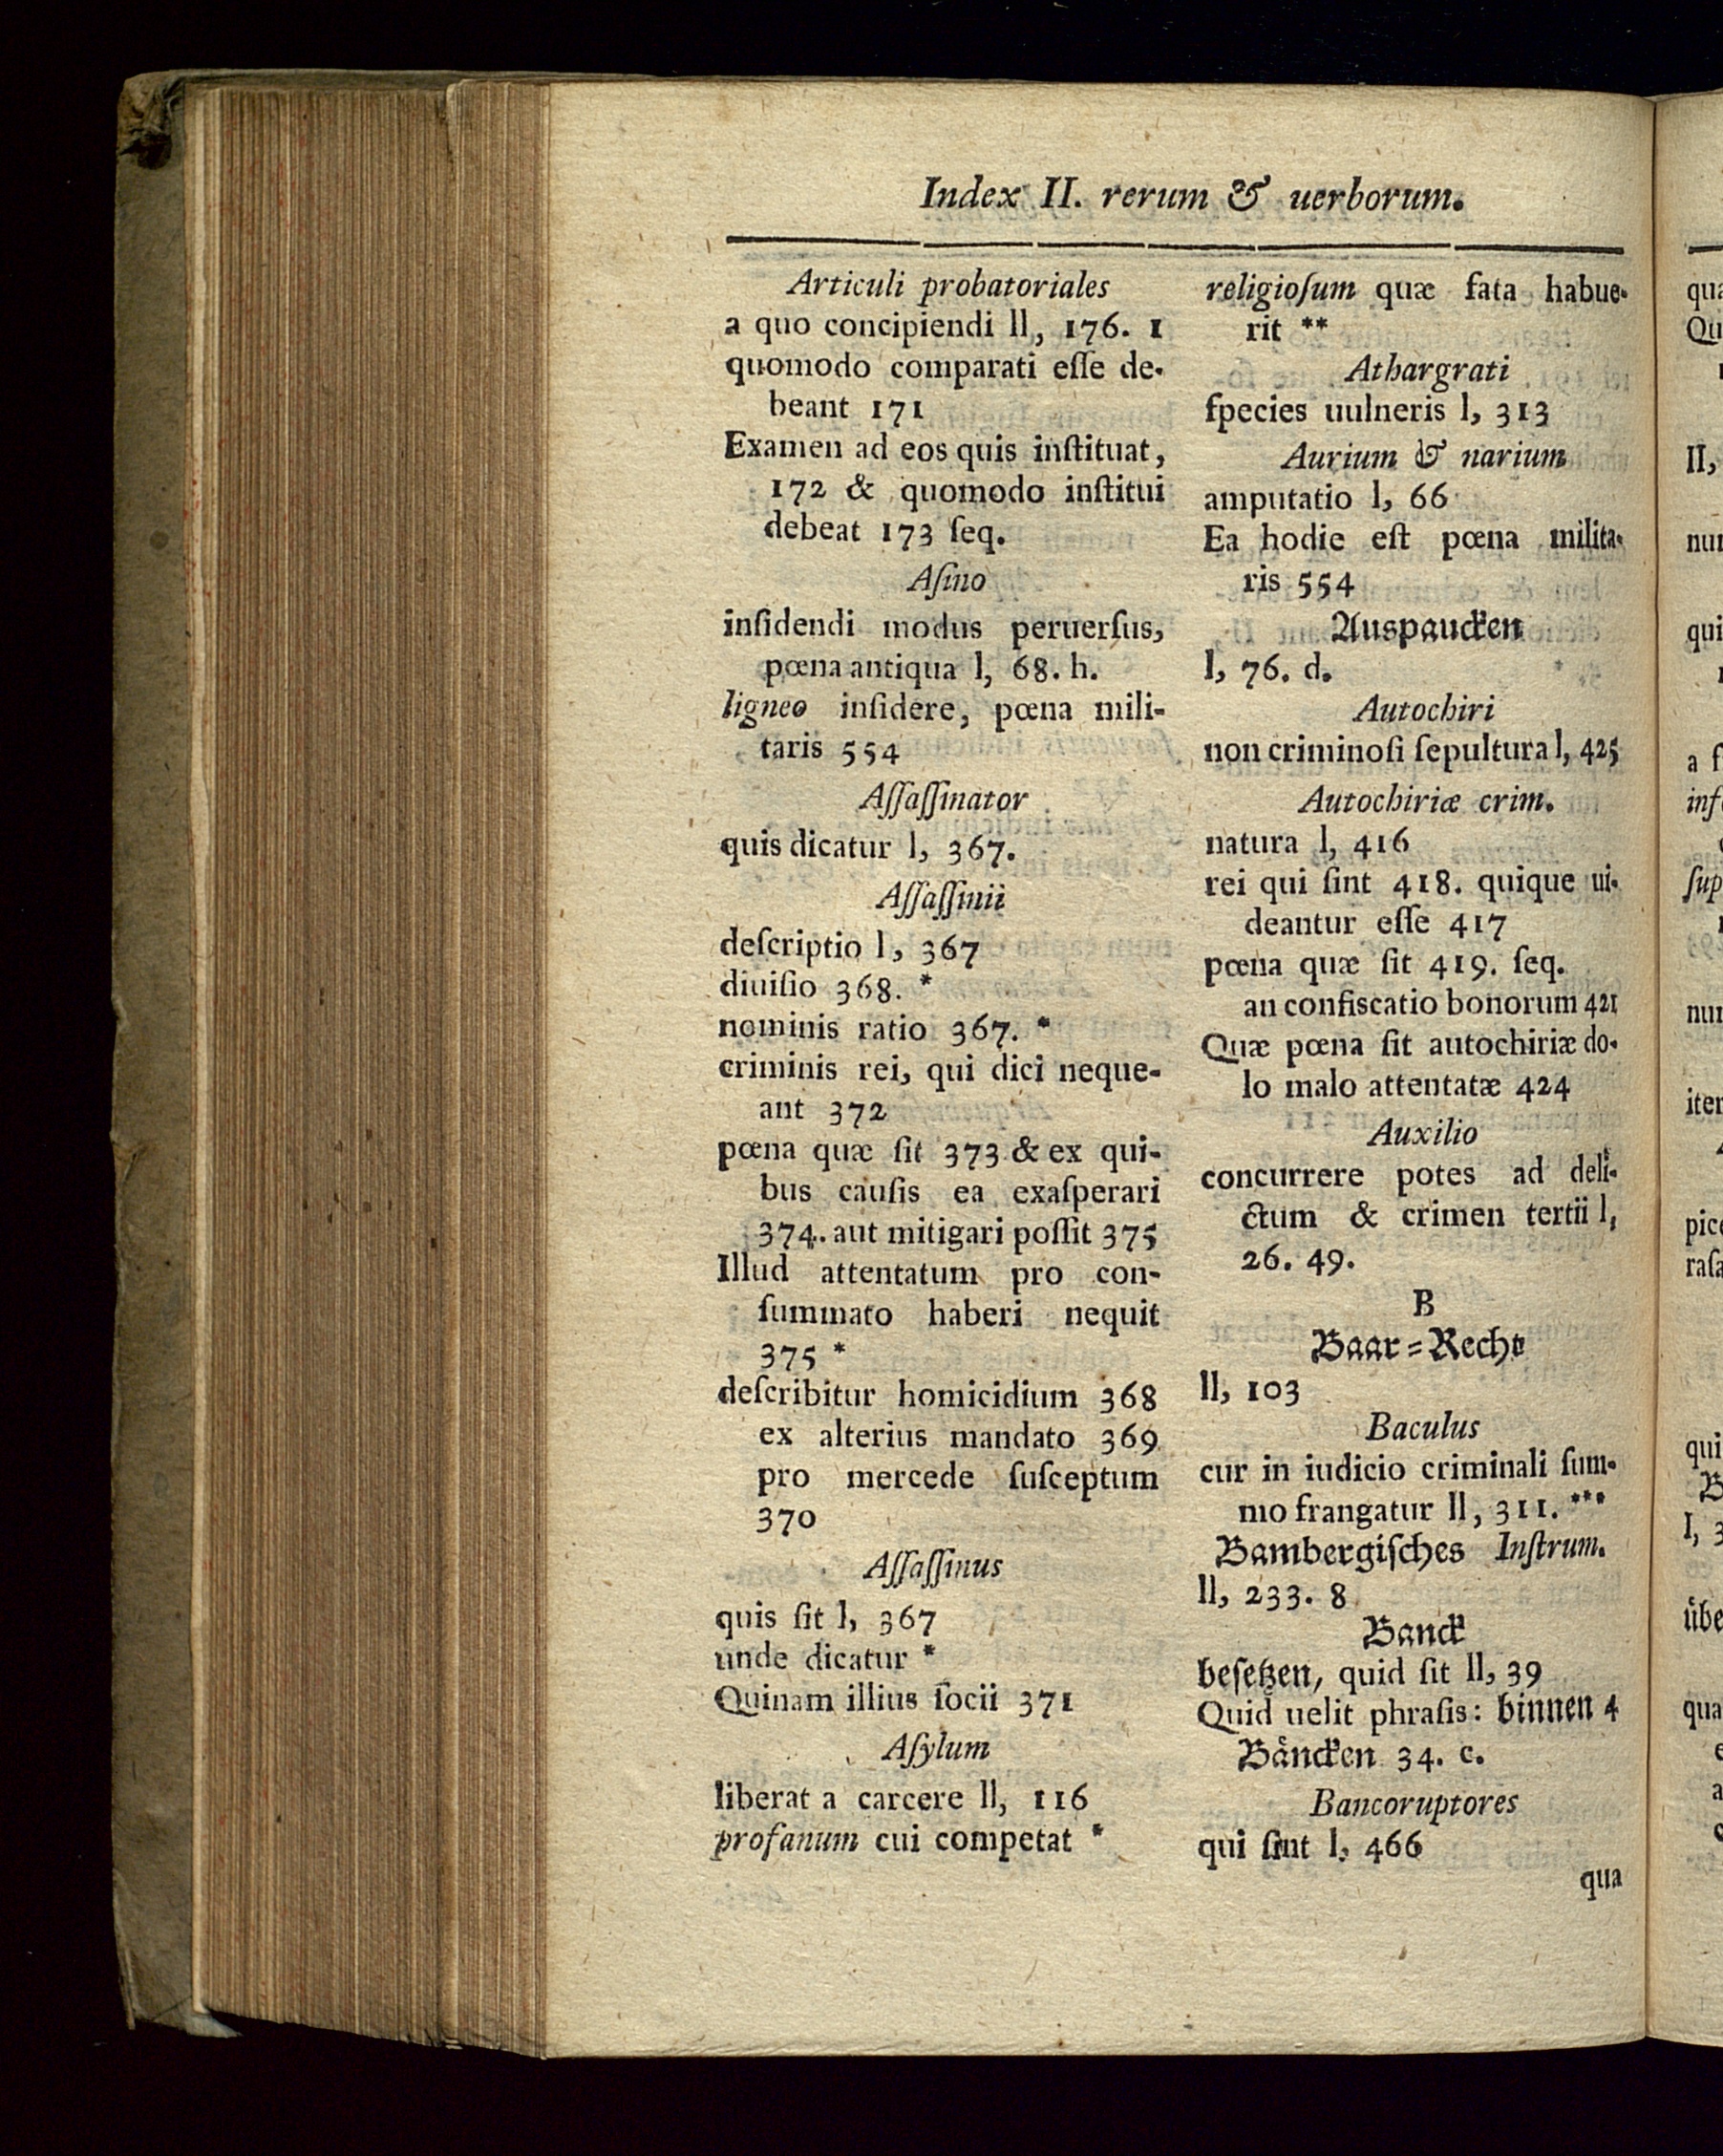 Index II. rerum & uerborum.
Articuli probatoriales
a quo concipiendi ll, 176. 1
quomodo comparati eſſe de-
beant 171
Examen ad eos quis inſtituat,
172 & quomodo inſtitui
debeat 173 ſeq.
Aſino
inſidendi modus peruerſus,
pœna antiqua l, 68. h.
ligneo inſidere, pœna mili-
taris 554
Aſſaſſinator
quis dicatur l, 367.
Aſſaſſinii
deſcriptio l, 367
diuiſio 368. *
nominis ratio 367. *
criminis rei, qui dici neque-
ant 372
pœna quæ ſit 373 & ex qui-
bus cauſis ea exaſperari
374. aut mitigari poſſit 375
Illud attentatum pro con-
ſummato haberi nequit
375 *
deſcribitur homicidium 368
ex alterius mandato 369
pro mercede ſuſceptum
370
Aſſaſſinus
quis ſit l, 367
unde dicatur *
Quinam illius ſocii 371
Aſylum
liberat a carcere ll, 116
profanum cui competat *
religioſum quæ fata habue-
rit **
Athargrati
ſpecies uulneris l, 313
Aurium & narium
amputatio l, 66
Ea hodie eſt pœna milita-
ris 554
Auspaucken
l, 76. d.
Autochiri
non criminoſi ſepultura l, 425
Autochiriæ crim.
natura l, 416
rei qui ſint 418. quique ui-
deantur eſſe 417
pœna quæ ſit 419. ſeq.
an confiscatio bonorum 421
Quæ pœna ſit autochiriæ do-
lo malo attentatæ 424
Auxilio
concurrere potes ad deli-
ctum & crimen tertii l,
26. 49.
B
Baar=Recht
ll, 103
Baculus
cur in iudicio criminali ſum-
mo frangatur ll, 311. ***
Bambergiſches Inſtrum.
ll, 233. 8
Banck
beſetzen, quid ſit ll, 39
Quid uelit phraſis: binnen 4
Bäncken 34. c.
Bancoruptores
qui ſint l, 466
qua